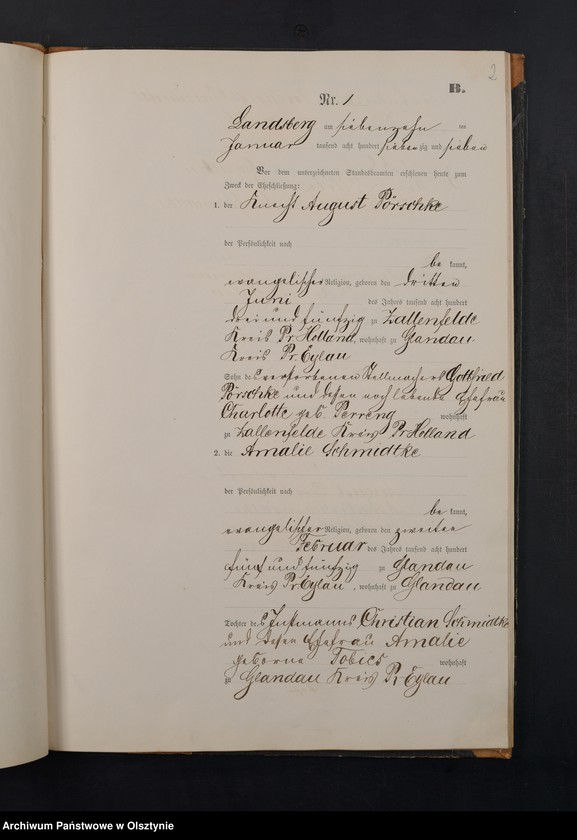 2
B.
Nr. 1
Landsberg am siebenzehn ten
Januar tausend acht hundert siebenzig und sieben
Vor dem unterzeichneten Standesbeamten erschienen heute zum
Zweck der Eheschließung:
1. der Knecht August Pörschke
der Persönlichkeit nach
be kannt,
evangelischer Religion, geboren den dritten
Juni des Jahres tausend acht hundert
drei und fünfzig zu Zallenfelde
Kreis Pr. Holland, wohnhaft zu Glandau
Kreis Pr. Eylau
Sohn des verstorbenen Stellmachers Gottfried
Pörschke und dessen noch lebende Ehefrau
Charlotte geb. Perreng wohnhaft
zu Zallenfelde Kreis Pr Holland
2. die Amalie Schmidtke
der Persönlichkeit nach
be kannt,
evangelischer Religion, geboren den zweiten
Februar des Jahres tausend acht hundert
fünf und fünfzig zu Glandau
Kreis Pr. Eylau, wohnhaft zu Glandau
Tochter des Instmanns Christian Schmidtke
und dessen Ehefrau Amalie
geborne Tobies wohnhaft
zu Glandau Kreis Pr Eylau
Archiwum Państwowe w Olsztynie